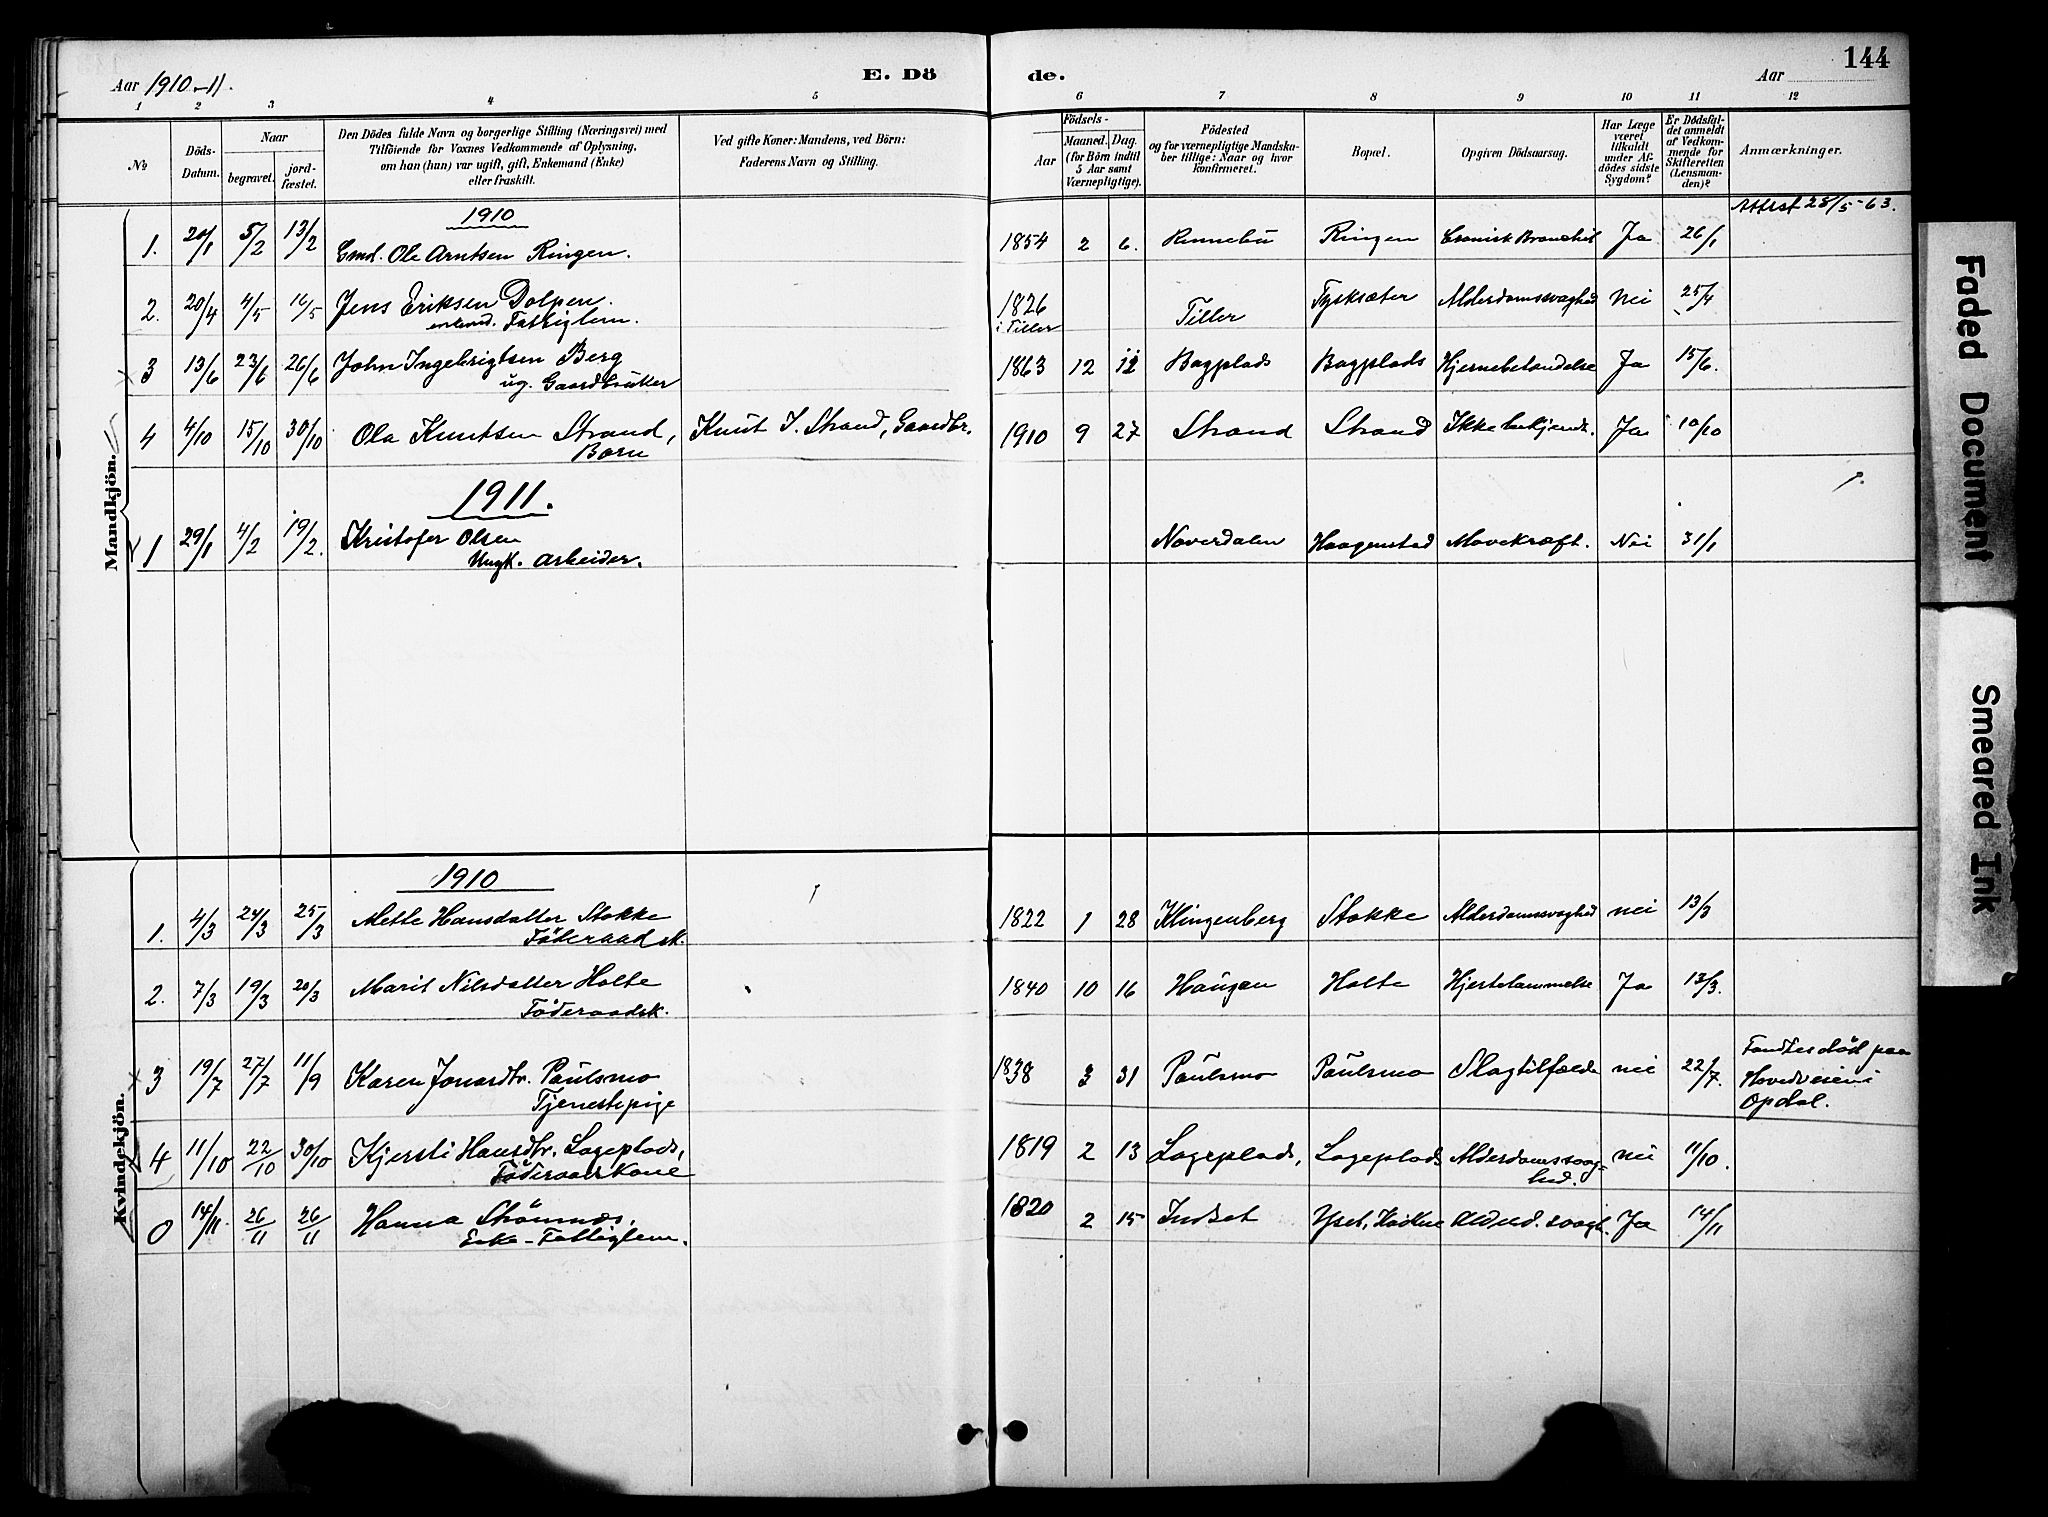 Aar 1910-11.
E. Dö
de.
Aar
144
1 2 3 4 5
6 7 8 9 10 11 12
№
Döds-Datum.
Naar
begravet.
jord-fæstet.
Den Dödes fulde Navn og borgerlige Stilling (Næringsvei) med
Tilföiende for Voxnes Vedkommende af Oplysning,
om han (hun) var ugift, gift, Enkemand (Enke)
eller fraskilt.
Ved gifte Koner: Mandens, ved Börn:
Faderens Navn og Stilling.
Födsels-
Aar
Maaned. Dag.
(for Börn indtil
5 Aar samt
Værnepligtige).
Födested
og for værnepligtige Mandska-
ber tillige: Naar og hvor
konfirmeret.
Bopæl.
Opgiven Dödsaarsag.
Har Læge
været
tilkaldt
under Af-
dödes sidste
Sygdom?
Er Dödsfal-
det anmeldt
af Vedkom-
mende for
Skifteretten
(Lensman-
den)?
Anmærkninger.
Mandkjön.
1910
Attest 28/5-63.
1. 20/1 5/2 13/2 Gmd. Ole Arntsen Ringen. 1854 2 6. Rennebu Ringen Cronisk Ja 26/1
2. 20/4 4/5 16/5 Jens Eriksen Dolpen. 1826 Tiller Tysksæter Alderdomsvaghed Nei 25/4
enkmd. Fattiglem. i Tiller
3 13/6 23/6 26/6 John Ingebrigtsen Berg 1863 12 12 Bagplads Bagplads Hjernebetændelse Ja 15/6.
ug. Gaardbruker
4 4/10 15/10 30/10 Ola Knutsen Strand, Knut I. Strand, Gaardbr. 1910 9 27 Strand Strand Ikke bekjendt. Ja 10/10
Barn
1911.
1 29/1 4/2 19/2. Kristofer Olsen Noverdalen Haagenstad Mavekræft. Nei 31/1
Ungk. arbeider.
Kvindekjön.
1910
1. 4/3 24/3 25/3 Mette Hansdatter Stokke 1822 1 28 Klingenberg Stokke Alderdomsvaghed nei 13/3
Föderaadsk.
2. 7/3 19/3 20/3 Marit Nilsdatter Holte 1840 10 16 Haugen Holte Hjertelammelse Ja 13/3.
Föderaadsk.
3 19/7 27/7 11/9 Karen Jonsdtr. Paulsmo 1838 3 31 Paulsmo Paulsmo Slagtilfælde nei 22/7. Fandtes död paa
Tjenestepige Hovedveien i
Opdal.
4 11/10 22/10 30/10 Kjersti Hansdtr. Lageplads, 1819 2 13 Lageplads, Lageplads Alderdomssvag- nei 11/10.
Föderaadskone hed.
0 14/11. 26/11 26/11 Hanna Strömnæs, 1820 2 15 Indset Yset, Alderd. svagh. Ja 14/11
Enke - Fattiglem.
Faded Document
Smeared Ink